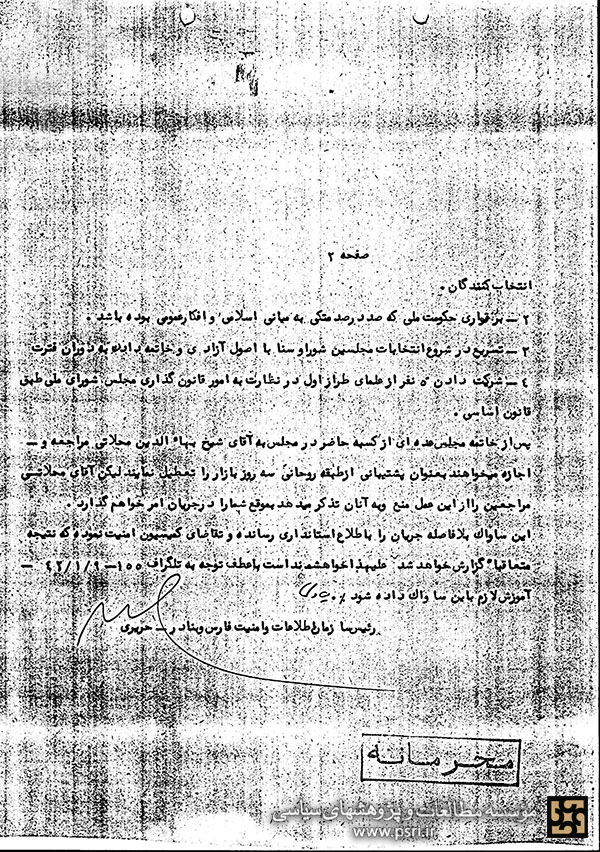 صفحه ۲
انتخاب کنندگان .
۲ – برقراری حکومت ملی که صد درصد متکی به مبانی اسلامی و افکار عمومی بوده باشد .
۳ – تسریع در شروع انتخابات مجلسین شورا و سنا با اصول آزادی و خاتمه دادن به دوران فترت
٤ – شرکت دادن ۵ نفر از علمای طراز اول در نظارت به امور قانون گذاری مجلس شورای ملی طبق
قانون اساسی .
پس از خاتمه مجلس عده ای از کسبه حاضر در مجلس به آقای شیخ بهاء الدین محلاتی مراجعه و –
اجازه میخواهند بعنوان پشتیبانی از طبقه روحانی سه روز بازار را تعطیل نمایند لیکن آقای محلاتی
مراجعین را از این عمل منع و به آنان تذکر میدهد بموقع شما را در جریان امر خواهم گذارد .
این ساواک بلافاصله جریان را باطلاع استانداری رسانده و تقاضای کمیسیون امنیت نموده که نتیجه
متعاقبا" گزارش خواهد شد علیهذا خواهشمند است با عطف توجه به تلگراف ۱۵۵ – ۴۲/۱/۹ –
آموزش لازم باین ساواک داده شود %
رئیس سازمان اطلاعات و امنیت فارس و بنادر – حریری
محرمانه
موسسه مطالعات و پژوهشهای سیاسی
www.psri.ir